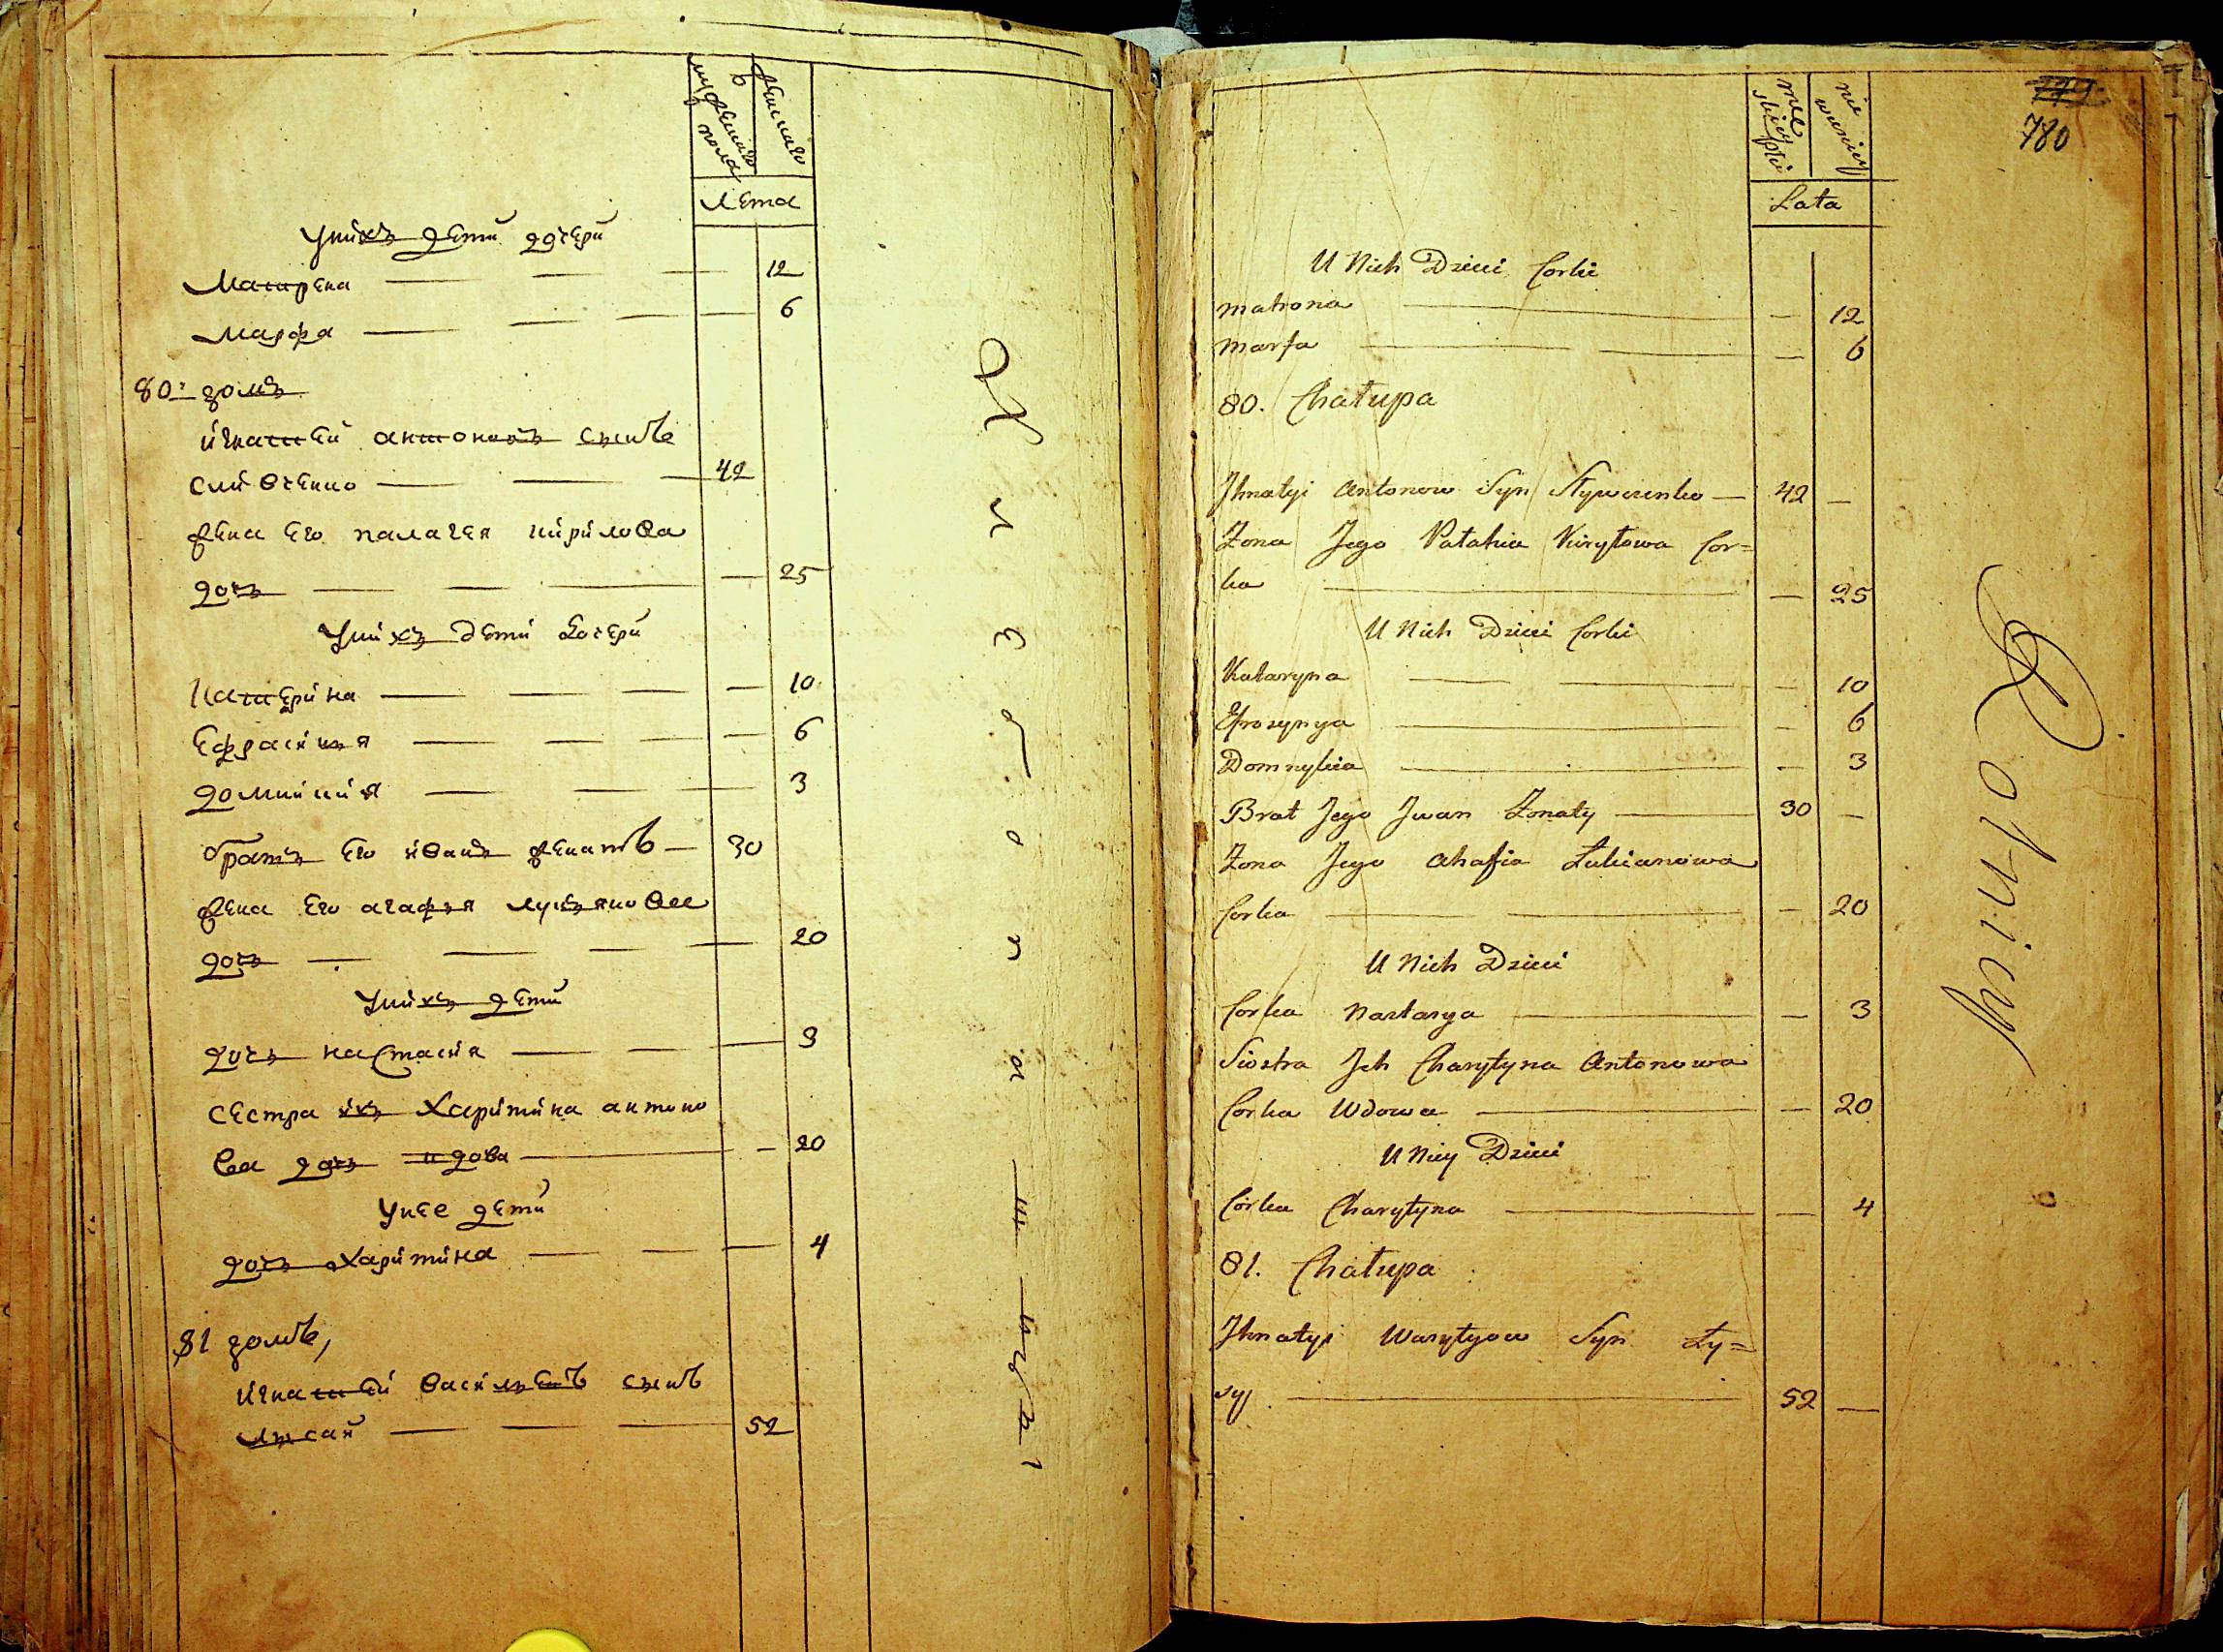 мужеска
пола
женска
Лета
Унихъ дети дочери
Матрена 12
Марфа 6
80й домъ
игнатей антоновъ сынъ
сливченко 42
жена его палагея кирилова
дочь — 25
Унихъ дети дочери
Катерина — 10
Ефрасинья — 6
домникия 3
братъ его иванъ женатъ 30
жена его агафья лукьянова
дочь 20
Унихъ дети
дочь настасия 3
сестра ихъ Харитина антоно
ва дочь вдова — 20
Унее дети
дочь Харитина 4
81 домъ,
игнатей васильевъ сынъ
лысай 52
780
męs
kiey płci
nie
wieściey
Lata
U Nich Dzieci Corki
Matrona — 12
Marfa — 6
80. Chałupa
Jhnatyi Antonow Syn Slywczenko 42 —
Zona Jego Pałahia Kiryłowa Cor=
ka — 25
U Nich Dzieci Corki
Kataryna — 10
Efrozynya — 6
Domnykia — 3
Brat Jego Jwan Zonaty 30 —
Zona Jego Ahafia Łukianowa
Corka — 20
U Nich Dzieci
Corka Nastasya — 3
Siostra Jch Charytyna Antonowa
Corka Wdowa — 20
U Niey Dzieci
Corka Charytyna — 4
81. Chałupa
Jhnatyi Wasylyow Syn Ły=
syj 52 —
Rolnicy